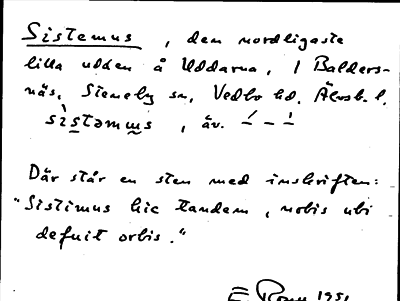 Sistemus, den nordligaste
lilla udden å Uddarna, i Balders-
näs, Steneby sn, Vedbo hd. Älvsb. l.
sìstəmɯs, äv. –́ – –̀
Där står en sten med inskriften:
"Sistimus hic tandem, nobis ubi
defuit orbis."
1951